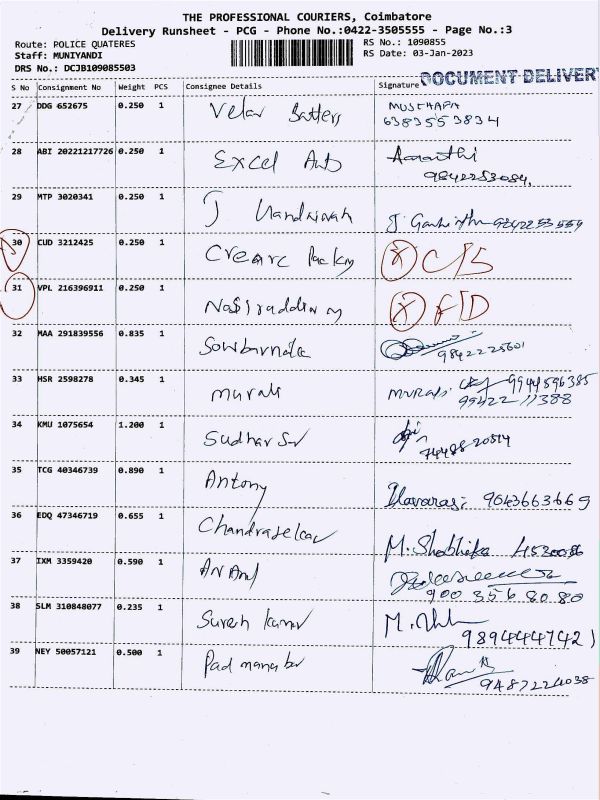 THE PROFESSIONAL COURIERS, Coimbatore
Delivery Runsheet - PCG - Phone No.:0422-3505555 - Page No.:3
Route: POLICE QUATERES
Staff: MUNIYANDI
DRS No.: DCJB109085503
RS No.: 1090855
RS Date: 03-Jan-2023
DOCUMENT DELIVER
S No Consignment No Weight PCS Consignee Details Signature
27 DDG 652675 0.250 1 Velav MUSTHAFA
6383553834
28 ABI 20221217726 0.250 1 Excel Auto
9842253084
29 MTP 3020341 0.250 1 J
30 CUD 3212425 0.250 1 X C/S
31 VPL 216396911 0.250 1 X
32 MAA 291839556 0.835 1 Sowbarnika
9842225601
33 HSR 2598278 0.345 1 murali murali 9944596385
9942211388
34 KMU 1075654 1.200 1 Sudhar
35 TCG 40346739 0.890 1 Antony Ilavarasi 9043663669
36 EDQ 47346719 0.655 1 Chandrasekar M.
37 IXM 3359420 0.590 1 Anand
900 356 8080
38 SLM 310848077 0.235 1 Suresh kumar M.
39 NEY 50057121 0.500 1
9487224038